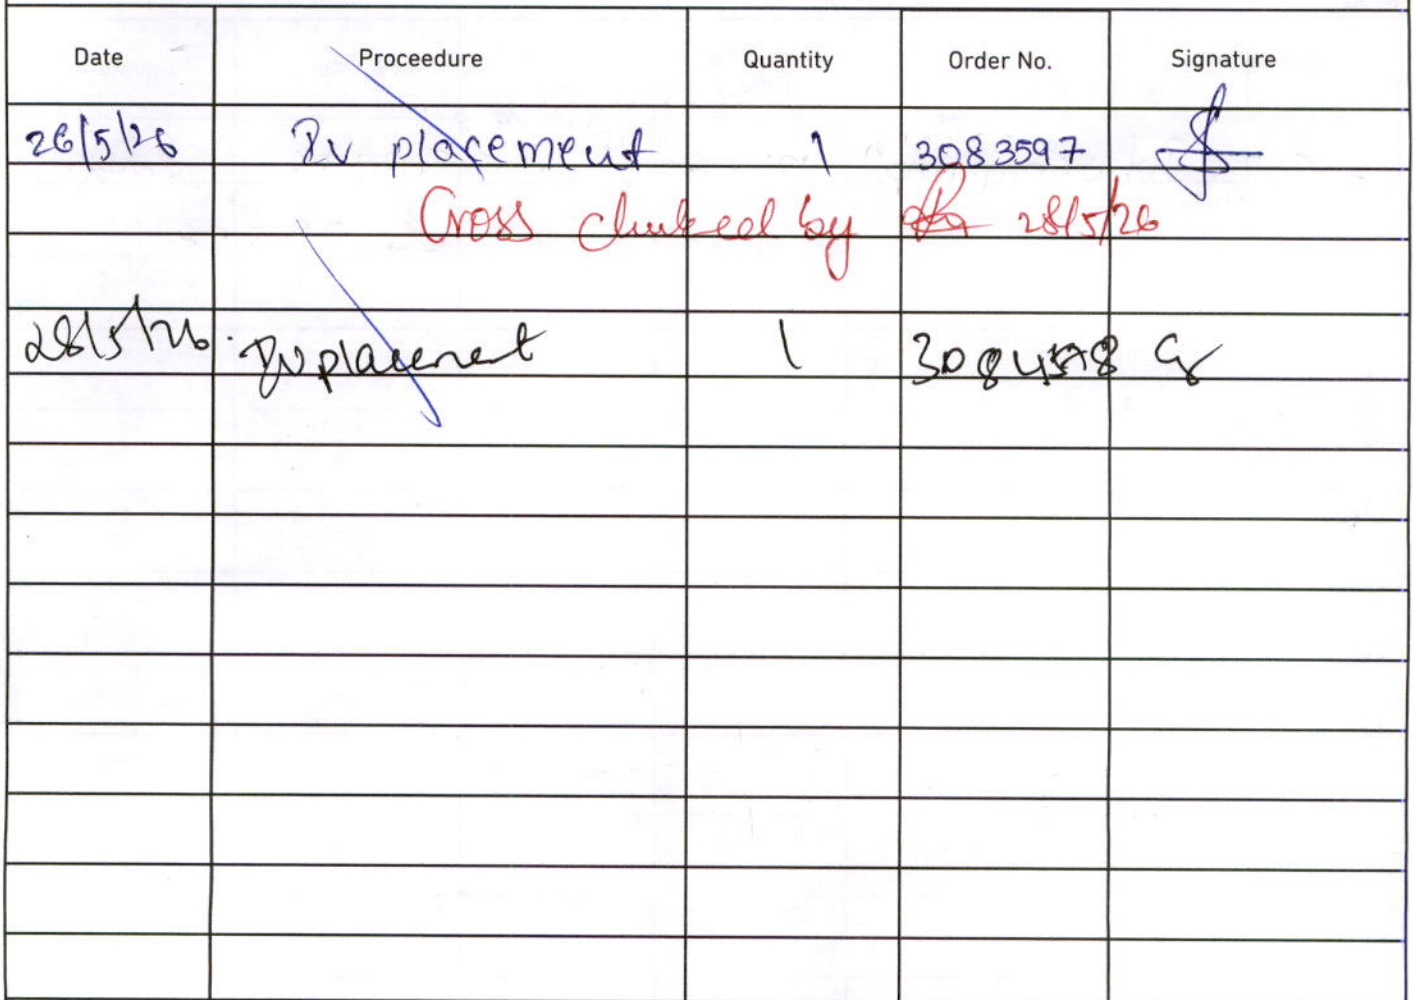 Date Proceedure Quantity Order No. Signature
26/5/26 Iv placement 1 3083597
Cross checked by 28/5/26
28/5/26. Iv placement 1